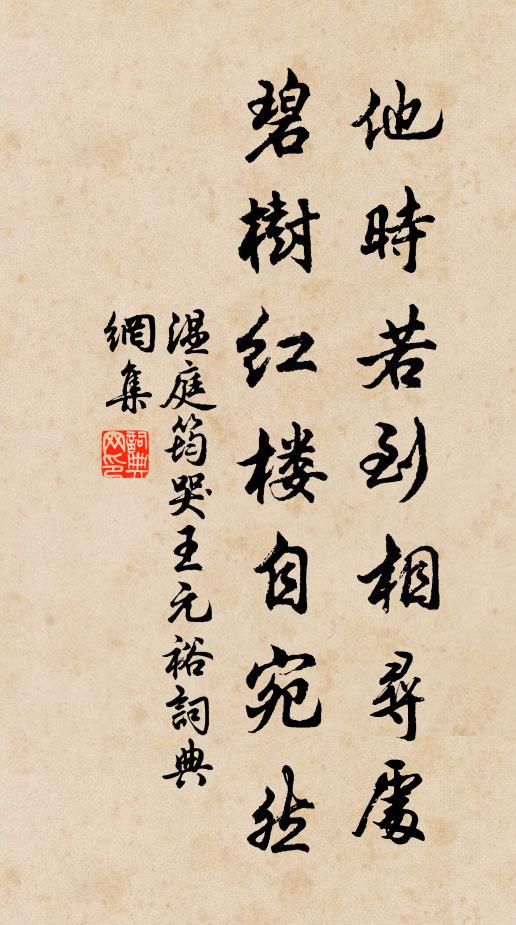 他時若到相尋處
碧樹红楼自宛然
温庭筠哭王元裕詞典
網集
詞典
网印